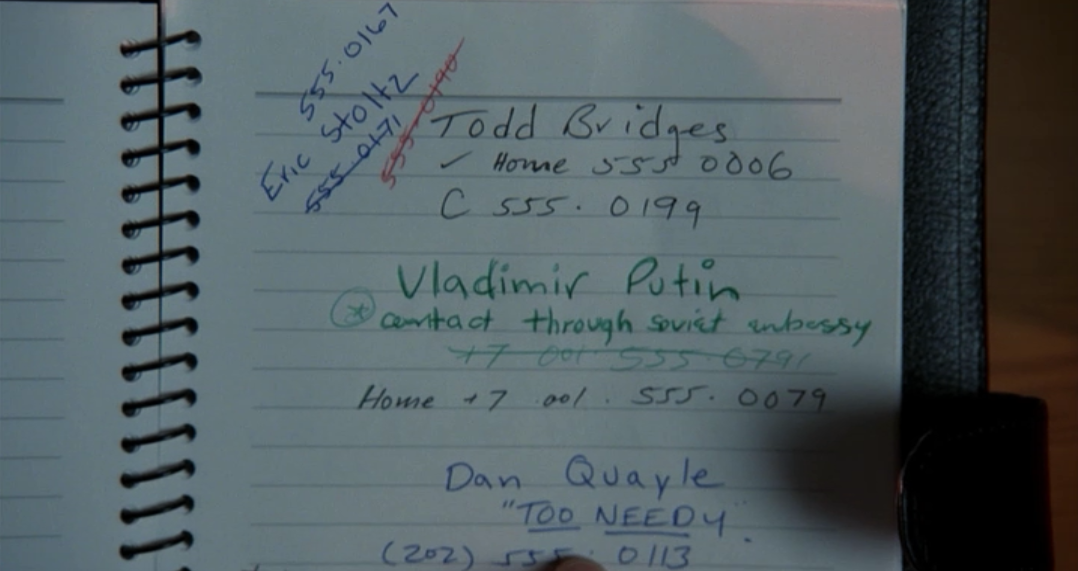 555.0167
Eric Stoltz
555-0171
555-0190
Todd Bridges
✓ Home 555 0006
C 555. 0199
Vladimir Putin
* contact through soviet embassy
+7 001 555 0791
Home +7 .001 . 555. 0079
Dan Quayle
"TOO NEEDY".
(202) 555. 0113